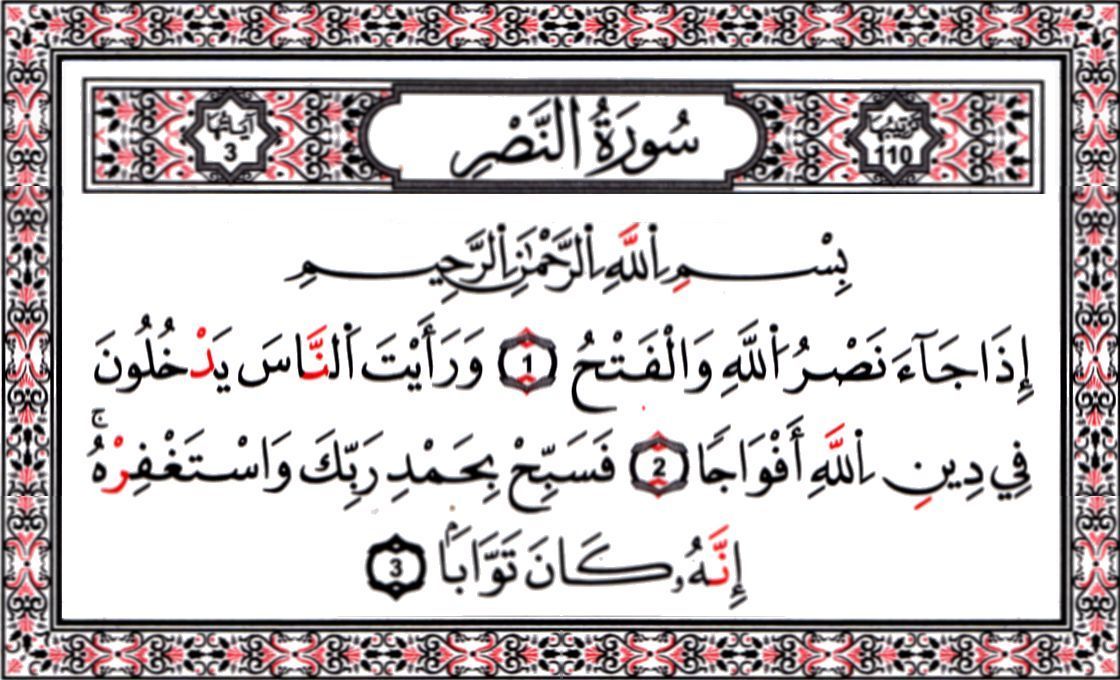 ترتيبها 110 سُورَةُ النَّصْرِ آياتها 3
بِسْمِ اللَّهِ الرَّحْمَٰنِ الرَّحِيمِ
إِذَا جَآءَ نَصْرُ اللَّهِ وَالْفَتْحُ 1 وَرَأَيْتَ النَّاسَ يَدْخُلُونَ
فِي دِينِ اللَّهِ أَفْوَاجًا 2 فَسَبِّحْ بِحَمْدِ رَبِّكَ وَاسْتَغْفِرْهُ ۚ
إِنَّهُۥ كَانَ تَوَّابًۢا 3